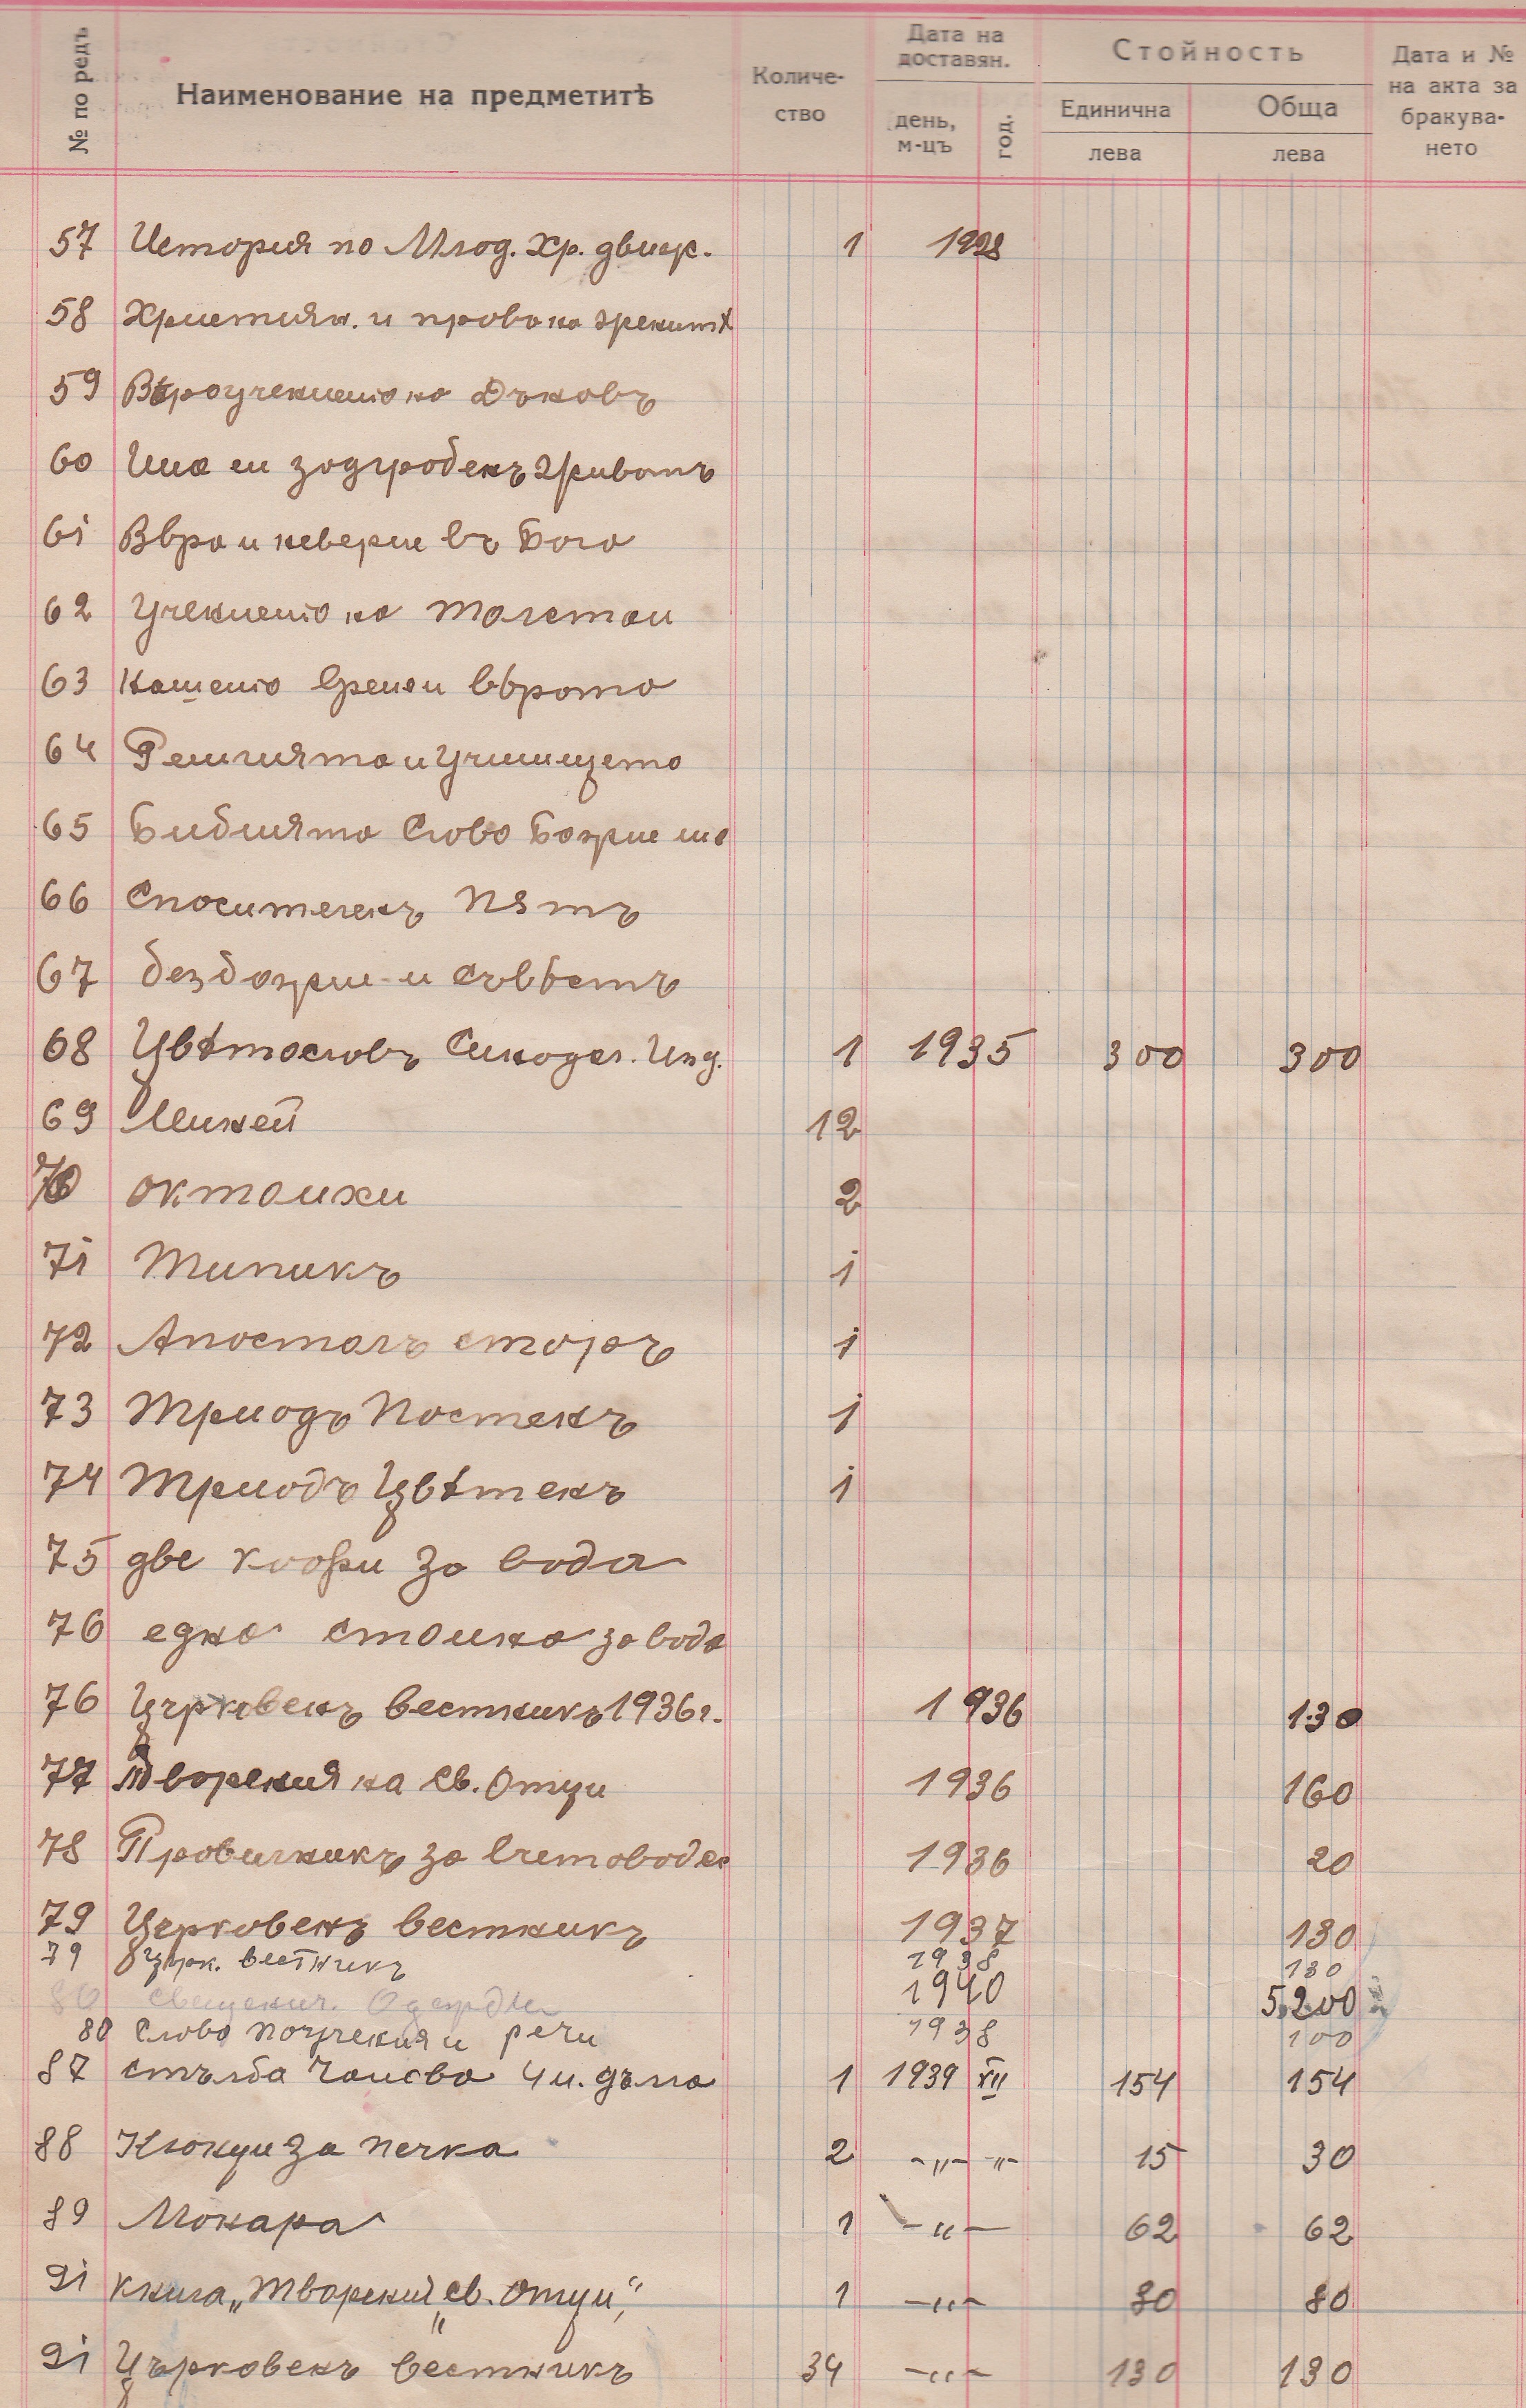 № по редъ
Наименование на предметитѣ
Количество
Дата на доставян.
день, м-цъ
год.
Стойность
Единична
лева
Обща
лева
Дата и № на акта за бракуването
57 История по Млод. Хр. движ. 1 1928
58 Християн. и права на
59 Вѣроучението на Дънковъ
60 Има ли задгробенъ животъ
61 Вѣра и неверие въ Бога
62 Учението на Толстои
63 Нашето време и вѣрата
64 Религията и училището
65 Библията Слово Божие ли е
66 Спасителенъ Пѫть
67 безбожие и съвѣсть
68 Цвѣтословъ Синодал. Изд. 1 1935 300 300
69 Миней 12
70 октоихи 2
71 Типикъ 1
72 Апостолъ старъ 1
73 Триодъ Постенъ 1
74 Триодъ Цвѣтенъ 1
75 две кофи за вода
76 една стомна за вода
76 Църковенъ вестникъ 1936 г. 1936 130
77 Творения на Св. Отци 1936 160
78 Правилникъ за 1936 20
79 Церковенъ вестникъ 1937 130
79 Църк. вестникъ 1938 130
80 свещенич. Одежди 1940 5,200
80 Слово поучения и речи 1938 100
87 стълба чамова 4 м. дълга 1 1939 XII 154 154
88 Кюнци за печка 2 -"- -"- 15 30
89 Мокара 1 -"- 62 62
91 книга „Творений св. Отци" 1 -"- 80 80
91 Църковенъ вестникъ 34 -"- 130 130